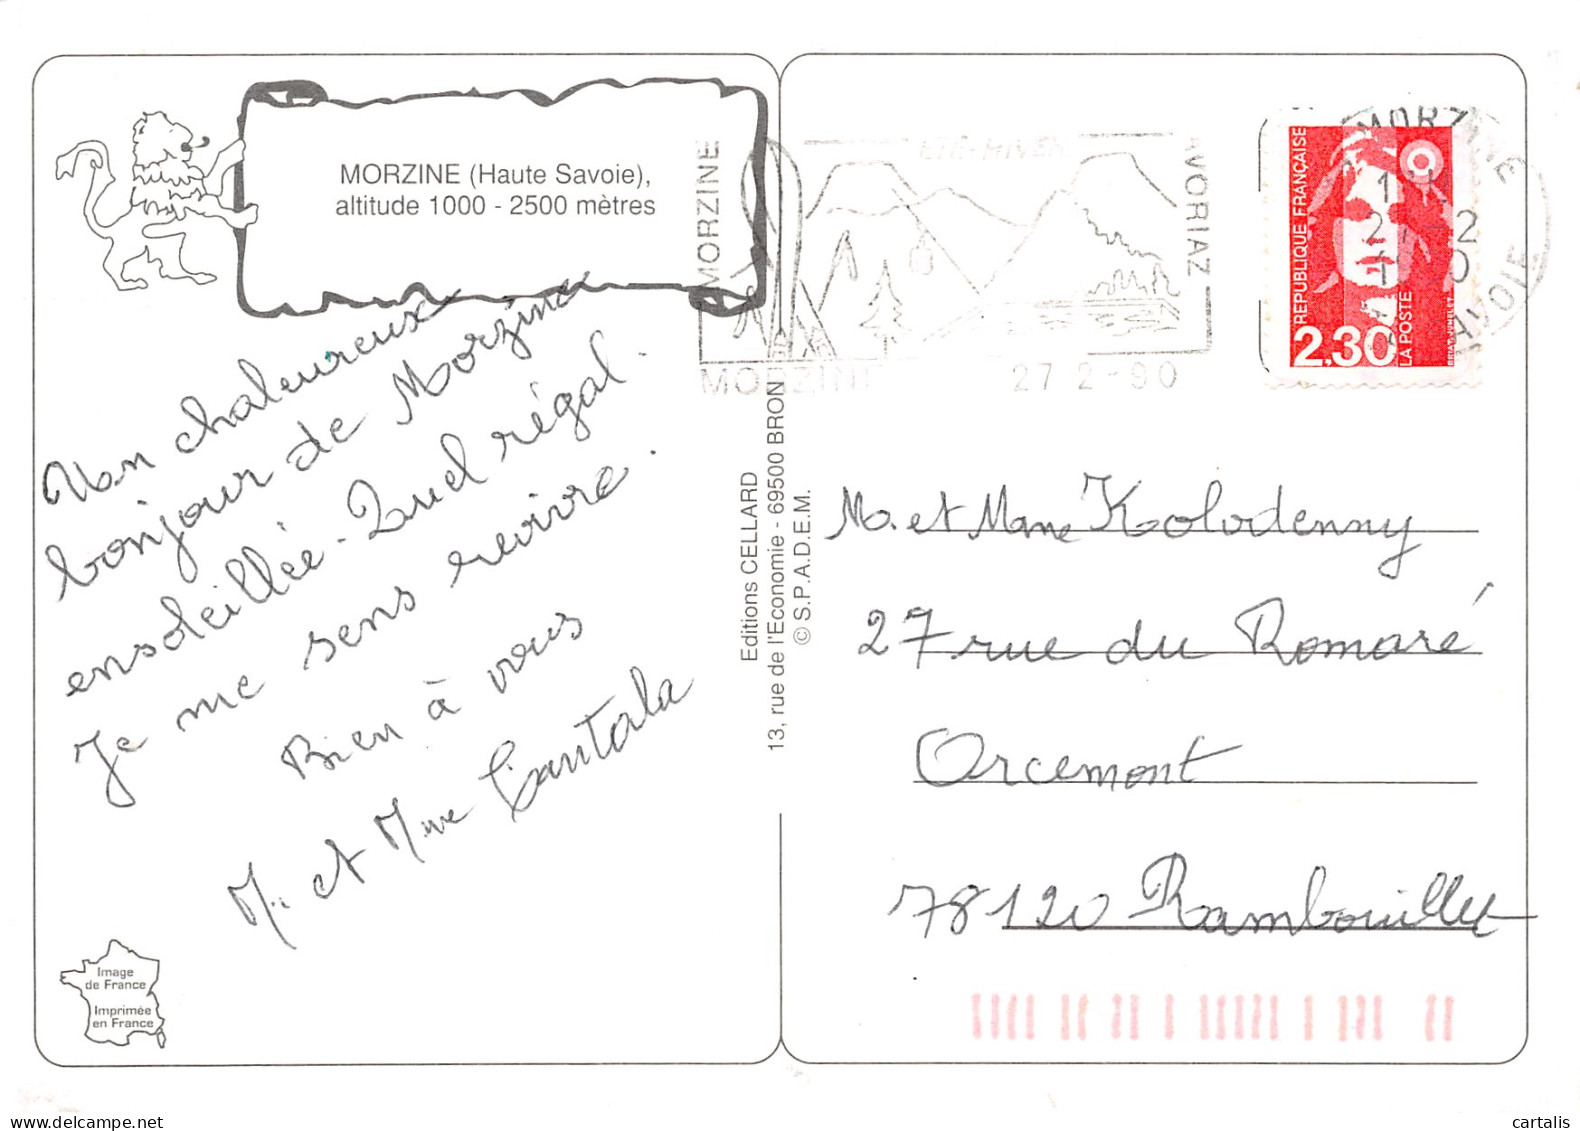 MORZINE (Haute Savoie),
altitude 1000 - 2500 mètres
Mon chaleureux
bonjour de Morzine
ensoleillée - Quel régal.
Je me sens revivre.
Bien à vous
M. et Mme Cantala
Image
de France
Imprimée
en France
Editions CELLARD
13, rue de l'Economie - 69500 BRON
© S.P.A.D.E.M.
MORZINE
ETE-HIVER
AVORIAZ
MORZINE 27 2-90
MORZINE
SAVOIE
REPUBLIQUE FRANÇAISE
2,30
LA POSTE
M. et Mme Kolodenny
27 rue du Romaré
Orcemont
78120 Rambouillet
cartalis